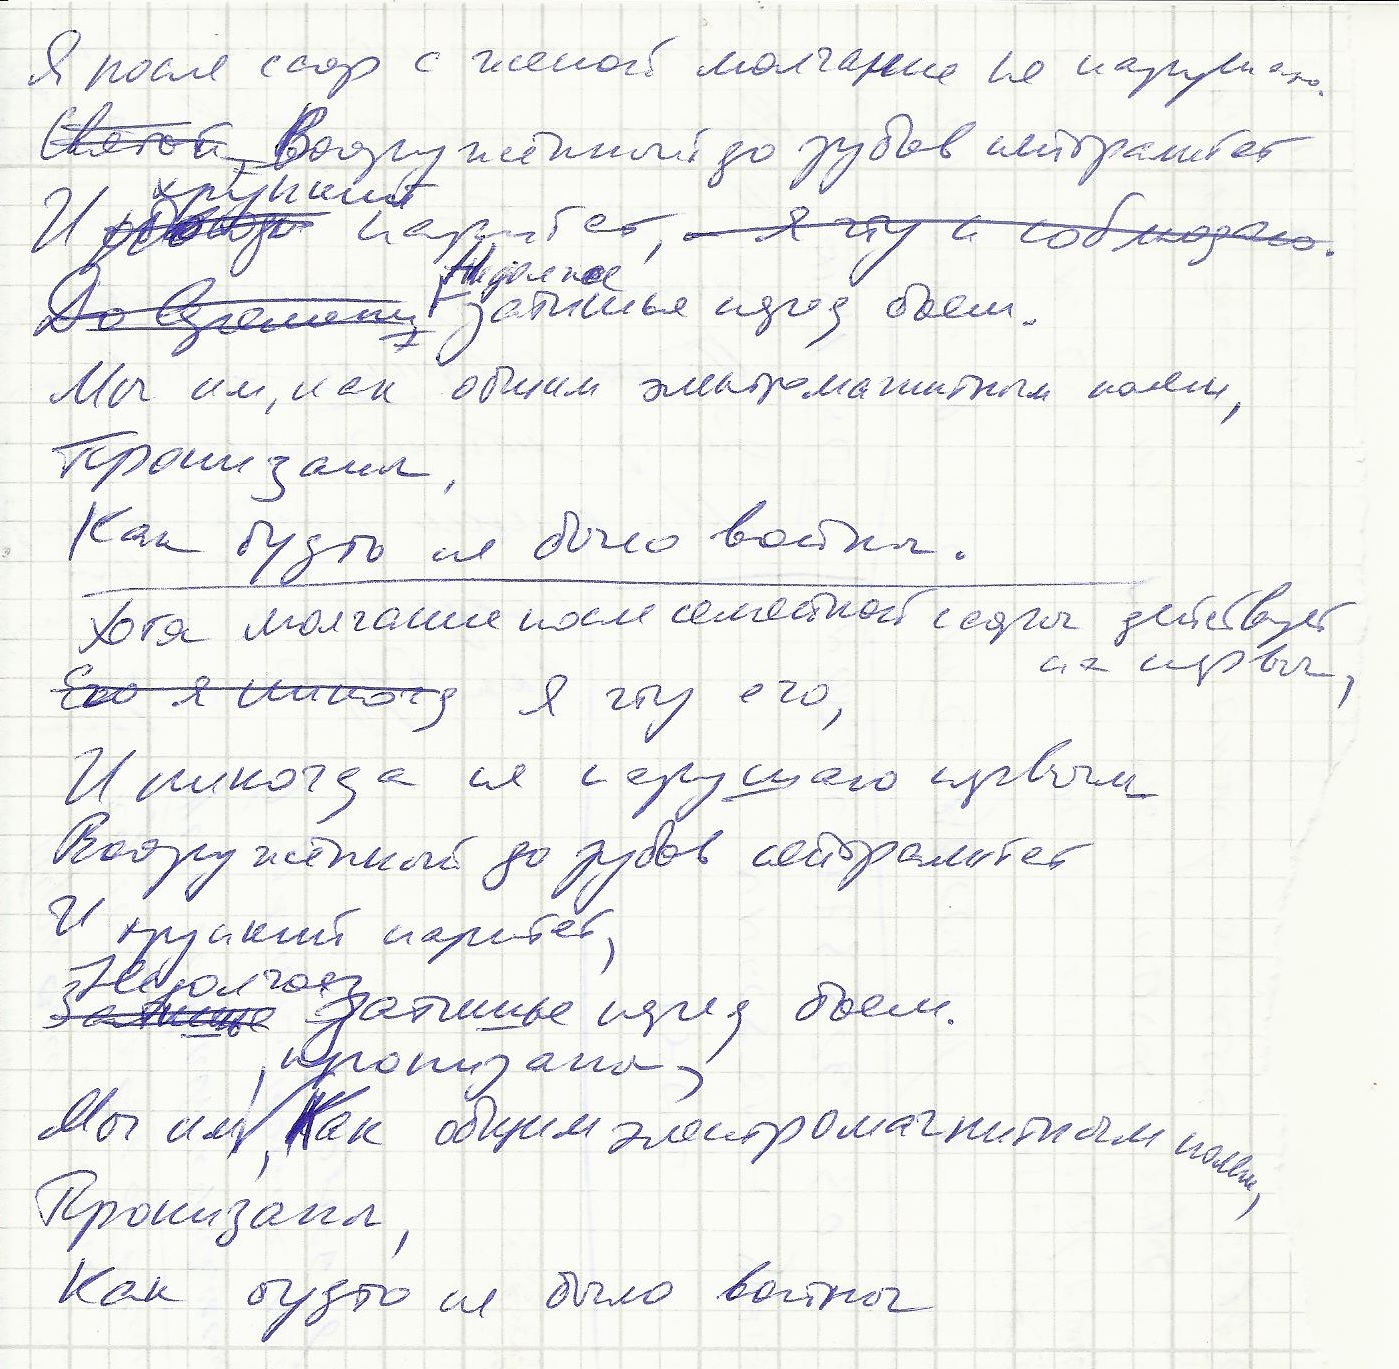 Я после ссор с женой молчание не нарушаю.
Святой, Вооружённый до зубов нейтралитет
хрупкий
И паритет, я чту и соблюдаю.
Недолгое
До времени затишье перед боем.
Мы им, как общим электромагнитным полем,
Пронизаны,
Как будто не было войны.
Хотя молчание после семейной ссоры действует
на нервы,
Его я никогд Я чту его,
И никогда не нарушаю первым
Вооружённый до зубов нейтралитет
И хрупкий паритет,
Недолгое
Затишье Затишье перед боем.
, пронизаны,
Мы им, Как общим электромагнитным полем,
Пронизаны,
Как будто не было войны